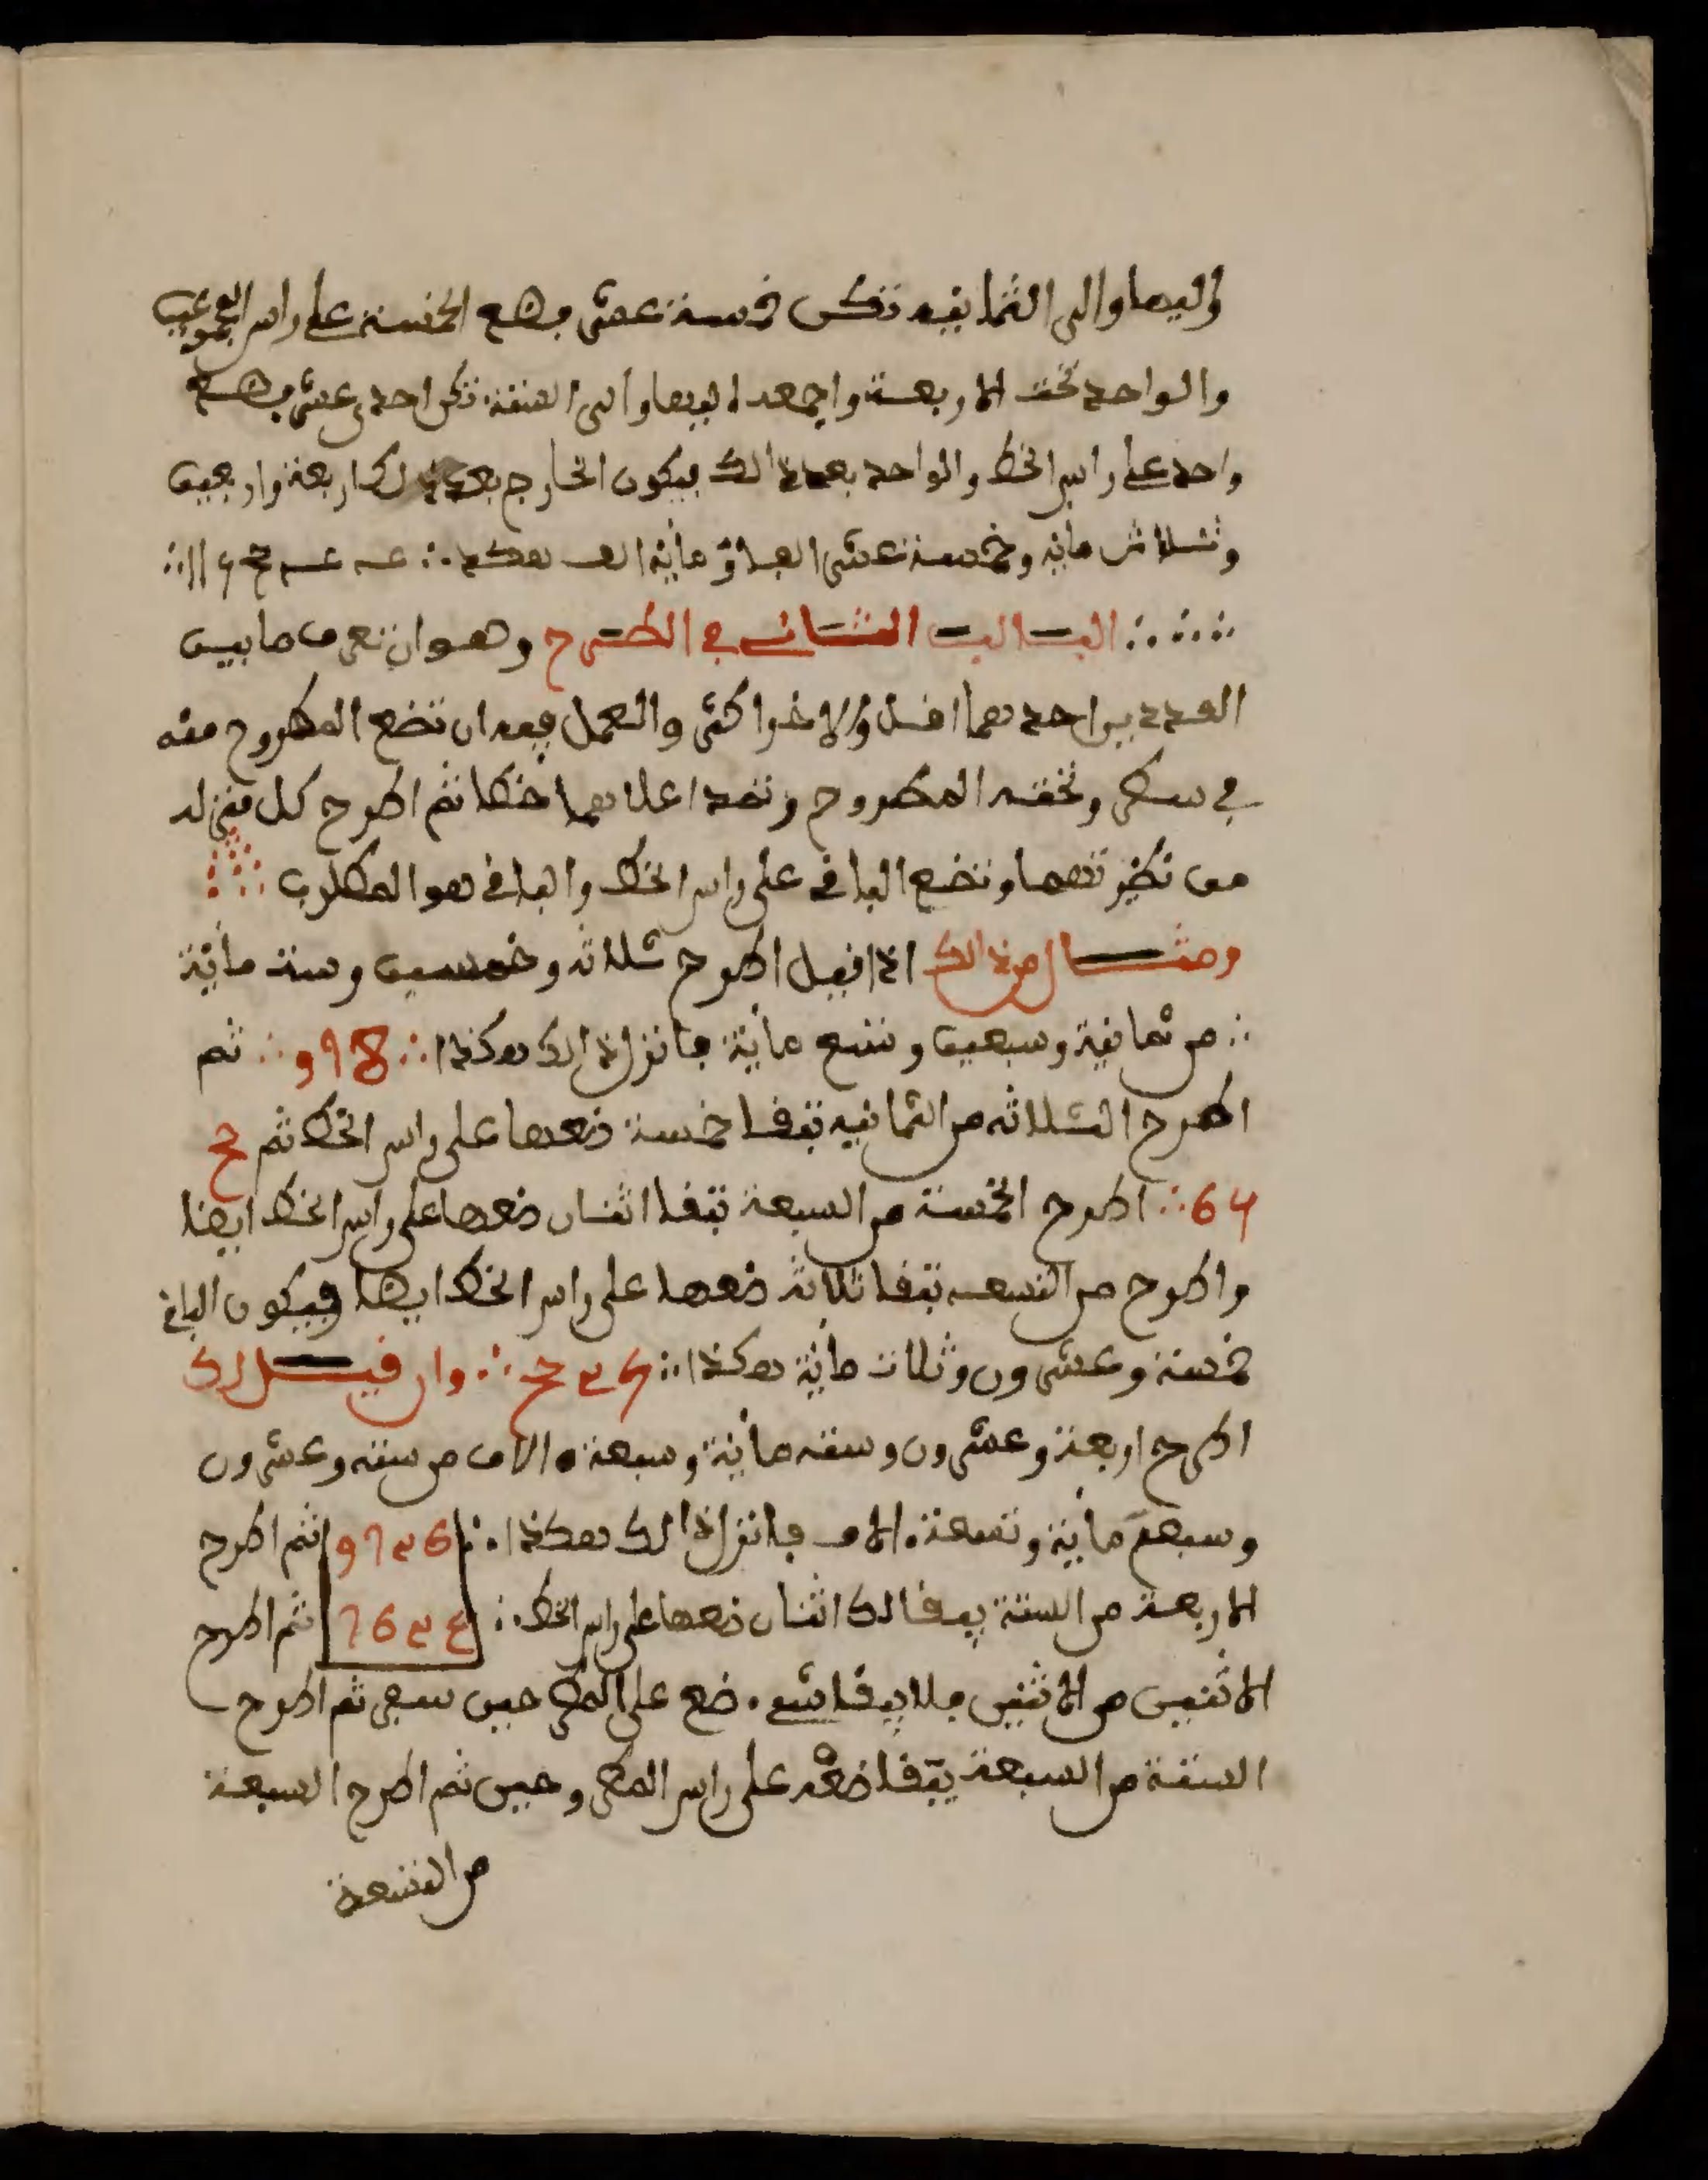 واليها والى الثمانيه تكن خمسة عشر فضع الخمسة على راس
والواحد تحت الاربعة واجمعه اليها والى الستة تكن احدى عشر فضع
واحد على راس الخط والواحد بعد ذالك فيكون الخارج بعد ذلك اربعة واربعين
وثلاث ماية وخمسة عشر الفا و ماية الف هكذا ∴
∴ البـاب الثـاني في الطـرح وهو ان تعرف ما بين
العددين احدهما اقل والاخر اكثر والعمل فيه ان تضع المطروح منه
في سطر وتحته المطروح وتمد اعلاهما خطا ثم اطرح كل منزله
من نظيرتها وتضع الباقي على راس الخط والباقي هو المطلوب ∴
ومثـال من ذالك اذا قيل اطرح ثلاثه وخمسين وست ماية
∴ من ثمانية وسبعين وتسع ماية فانزل ذالك هكذا ∴ 8 9 و ∴ ثم
اطرح الثلاثه من الثمانيه تبقا خمسة ضعها على راس الخط ثم
64 ∴ اطرح الخمسة من السبعة تبقا اثنان ضعها على راس الخط ايضا
واطرح من التسعه تبقا ثلاثة ضعها على راس الخط ايضا فيكون الباقي
خمسة وعشرون وثلاث ماية هكذا ∴ وان قيـل لك
اطرح اربعة وعشرون وسته ماية وسبعة الاف من سته وعشرون
وسبعة ماية وتسعة الاف فانزل ذالك هكذا ∴ ثم اطرح
الاربعة من الستة يبقا لك اثنان ضعها على راس الخط ∴ ثم اطرح
الاثنين من الاثنين فلا يبقا شيء ضع على المطروحين صفر ثم اطرح
الستة من السبعة يبقا ضعه على راس المطروحين ثم اطرح السبعة
من التسعة